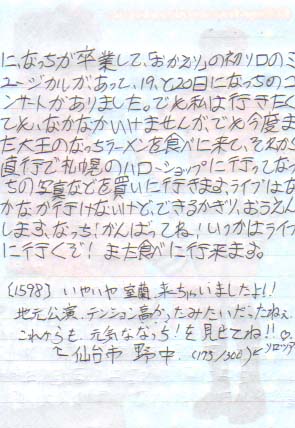 に、なっちが卒業して、「おかえり」の初ソロのミ
ュージカルがあって、19、と20日になっちのコ
ンサートがありました。でも私は行きたく
ても、なかなかいけませんが、でも今度ま
た大王のなっちラーメンを食べに来て、それから
直行で札幌のハローショップに行ってなっ
ちの写真などを買いに行きます、ライブはな
かなか行けないけど、できるかぎり、おうえん
します、なっち!がんばってね!いつかはライブ
に行くぞ!また食べに行来ます。
〔1598〕いやいや室蘭、来ちゃいましたよ!!
地元公演、テンション高かったみたいだったねぇ
これからも、元気ななっち!を見せてね!!♡。
~仙台市 野中 (175/300)